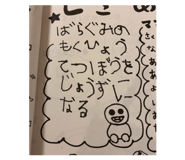 ばらぐみの
もくひょう
てつぼうを
じょうずに
なる